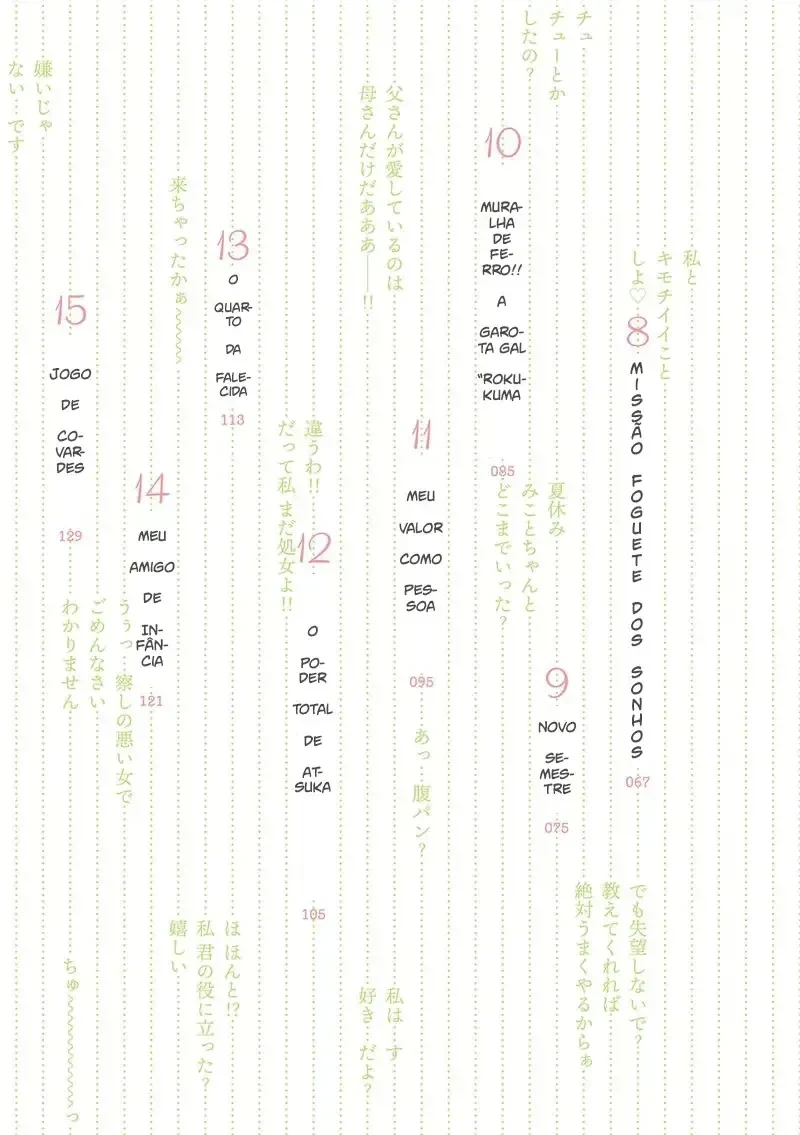 チュ
チューとか
したの？
私と
キモチイイこと
しよ♡
8
MISSÃO FOGUETE DOS SONHOS
067
でも失望しないで？
教えてくれれば
絶対うまくやるからぁ
9
NOVO
SE-
MES-
TRE
075
10
MURA-
LHA
DE
FE-
RRO!!
A
GARO-
TA GAL
"ROKU-
KUMA
085
夏休み
みことちゃんと
どこまでいった？
父さんが愛しているのは
母さんだけだあああ──!!
11
MEU
VALOR
COMO
PES-
SOA
095
あっ…腹パン？
私は す
好き だよ？
違うわ!!
だって私 まだ処女よ!!
12
O
PO-
DER
TOTAL
DE
AT-
SUKA
105
来ちゃったかぁ〜〜〜〜
13
O
QUAR-
TO
DA
FALE-
CIDA
113
ほ ほんと!?
私 君の役に立った？
嬉しい
14
MEU
AMIGO
DE
IN-
FÂN-
CIA
121
うぅっ…察しの悪い女で
ごめんなさい
わかりません
嫌いじゃ
ない…です
15
JOGO
DE
CO-
VAR-
DES
129
ちゅ〜〜〜〜〜〜〜っ